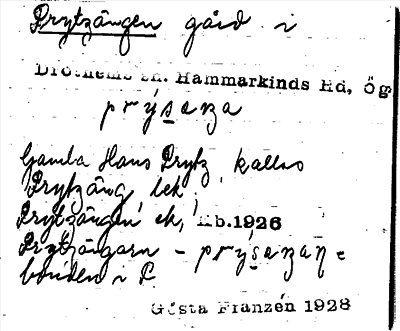 Prytzängen gård i
Drothems sn. Hammarkinds Hd, Ög
prýsaŋa
Gamla Hans Prytz kallas
Prytzäng lek.
Prytzängen ek, Kb.1926
Prytzängarn - prýsaŋaṇ =
bonden i P
Gösta Franzén 1928